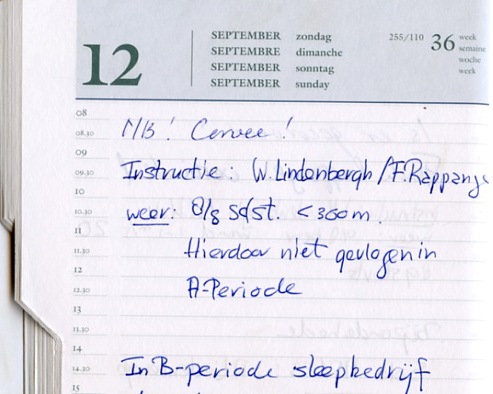 12
SEPTEMBER zondag
SEPTEMBRE dimanche
SEPTEMBER sonntag
SEPTEMBER sunday
255/110
36
week
semaine
woche
week
08
08.30 NB! Corvee!
09
09.30 Instructie: W. Lindenbergh / F. Rappange
10
10.30 weer: 8/8 St. <300m.
11
11.30 Hierdoor niet gevlogen in
12
12.30 A-Periode
13
13.30
14
14.30 In B-periode sleepbedrijf
15